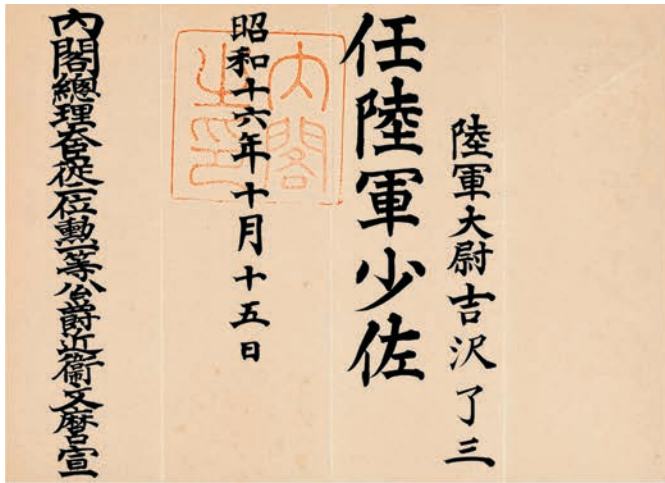 陸軍大尉吉沢了三
任陸軍少佐
昭和十六年十月十五日
内閣之印
內閣總理大臣從二位勲一等公爵近衞文麿宣